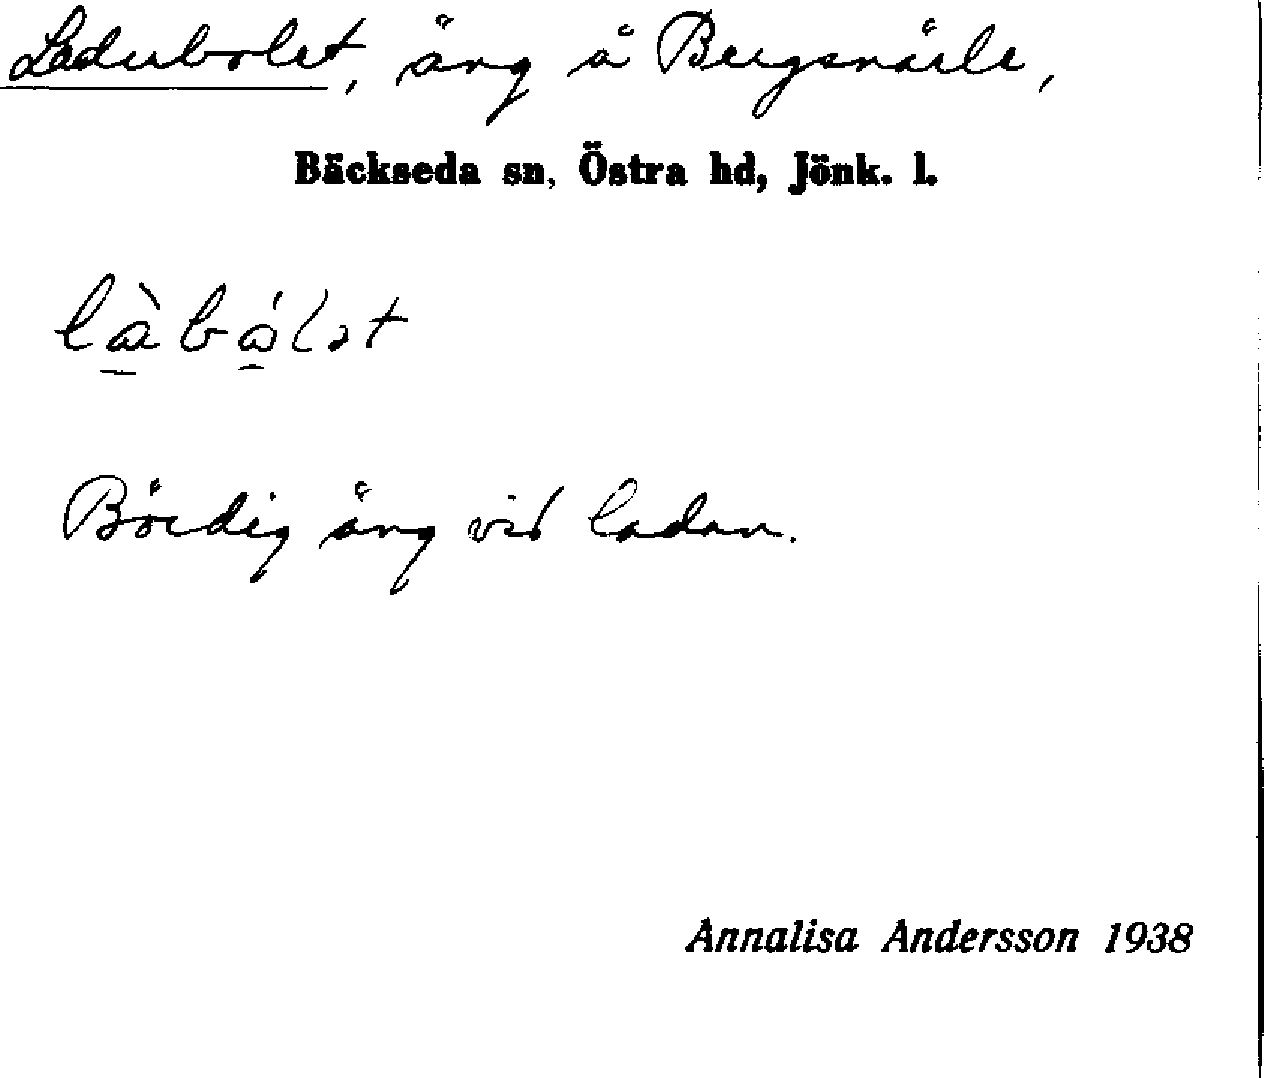 Ladubolet, äng å Bergsnärle,
Bäckseda sn, Östra hd, Jönk. l.
Bördig äng vid ladan.
Annalisa Andersson 1938